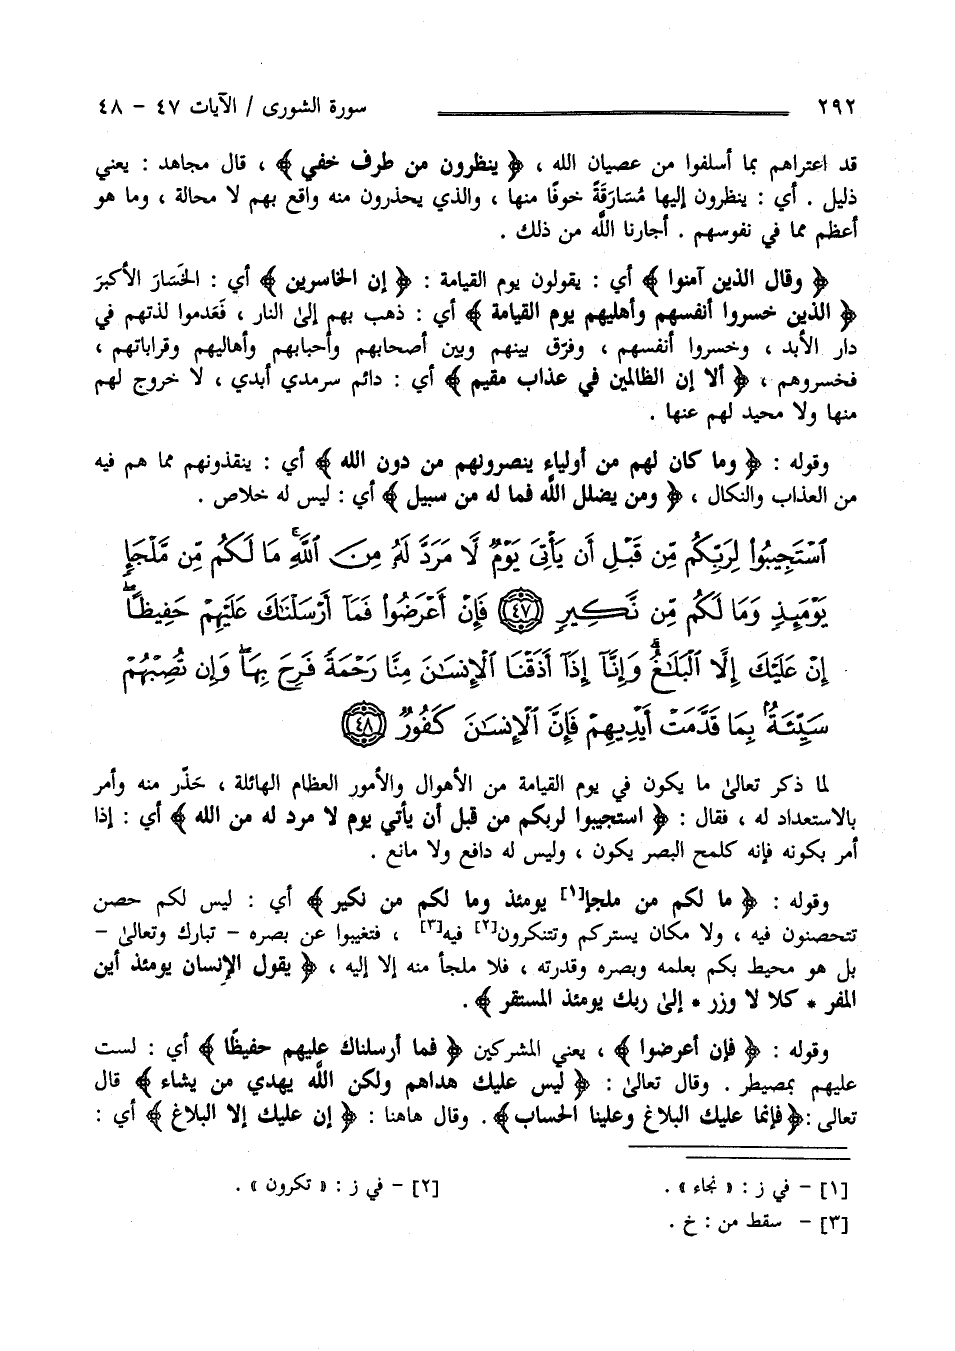 ٢٩٢ سورة الشورى / الآيات ٤٧ - ٤٨
قد اعتراهم بما أسلفوا من عصيان الله ، ﴿ ينظرون من طرف خفي ﴾ ، قال مجاهد : يعني
ذليل . أي : ينظرون إليها مُسَارَقَةً خوفًا منها ، والذي يحذرون منه واقع بهم لا محالة ، وما هو
أعظم مما في نفوسهم . أجارنا اللَّه من ذلك .
﴿ وقال الذين آمنوا ﴾ أي : يقولون يوم القيامة : ﴿ إن الخاسرين ﴾ أي : الخَسَارَ الأكبرَ
﴿ الذين خسروا أنفسهم وأهليهم يوم القيامة ﴾ أي : ذهب بهم إلىٰ النار ، فَعَدموا لذتهم في
دار الأبد ، وخسروا أنفسهم ، وفرّق بينهم وبين أصحابهم وأحبابهم وأهاليهم وقراباتهم ،
فخسروهم ، ﴿ ألا إن الظالمين في عذاب مقيم ﴾ أي : دائم سرمدي أبدي ، لا خروج لهم
منها ولا محيد لهم عنها .
وقوله : ﴿ وما كان لهم من أولياء ينصرونهم من دون الله ﴾ أي : ينقذونهم مما هم فيه
من العذاب والنكال ، ﴿ ومن يضلل اللَّه فما له من سبيل ﴾ أي : ليس له خلاص .
ٱسْتَجِيبُوا۟ لِرَبِّكُم مِّن قَبْلِ أَن يَأْتِىَ يَوْمٌ لَّا مَرَدَّ لَهُۥ مِنَ ٱللَّهِ ۚ مَا لَكُم مِّن مَّلْجَإٍ
يَوْمَئِذٍ وَمَا لَكُم مِّن نَّكِيرٍ ﴿٤٧﴾ فَإِنْ أَعْرَضُوا۟ فَمَآ أَرْسَلْنَٰكَ عَلَيْهِمْ حَفِيظًا ۖ
إِنْ عَلَيْكَ إِلَّا ٱلْبَلَٰغُ ۗ وَإِنَّآ إِذَآ أَذَقْنَا ٱلْإِنسَٰنَ مِنَّا رَحْمَةً فَرِحَ بِهَا ۖ وَإِن تُصِبْهُمْ
سَيِّئَةٌۢ بِمَا قَدَّمَتْ أَيْدِيهِمْ فَإِنَّ ٱلْإِنسَٰنَ كَفُورٌ ﴿٤٨﴾
لما ذكر تعالىٰ ما يكون في يوم القيامة من الأهوال والأمور العظام الهائلة ، حَذّر منه وأمر
بالاستعداد له ، فقال : ﴿ استجيبوا لربكم من قبل أن يأتي يوم لا مرد له من الله ﴾ أي : إذا
أمر بكونه فإنه كلمح البصر يكون ، وليس له دافع ولا مانع .
وقوله : ﴿ ما لكم من ملجإ[١] يومئذ وما لكم من نكير ﴾ أي : ليس لكم حصن
تتحصنون فيه ، ولا مكان يستركم وتتنكرون[٢] فيه[٣] ، فتغيبوا عن بصره - تبارك وتعالىٰ -
بل هو محيط بكم بعلمه وبصره وقدرته ، فلا ملجأ منه إلا إليه ، ﴿ يقول الإنسان يومئذ أين
المفر * كلا لا وزر * إلىٰ ربك يومئذ المستقر ﴾ .
وقوله : ﴿ فإن أعرضوا ﴾ ، يعني المشركين ﴿ فما أرسلناك عليهم حفيظًا ﴾ أي : لست
عليهم بمصيطر . وقال تعالىٰ : ﴿ ليس عليك هداهم ولكن اللَّه يهدي من يشاء ﴾ قال
تعالى :﴿ فإنما عليك البلاغ وعلينا الحساب ﴾ . وقال هاهنا : ﴿ إن عليك إلا البلاغ ﴾ أي :
[١] - في ز : « نجاء » . [٢] - في ز : « تكرون » .
[٣] - سقط من : خ .